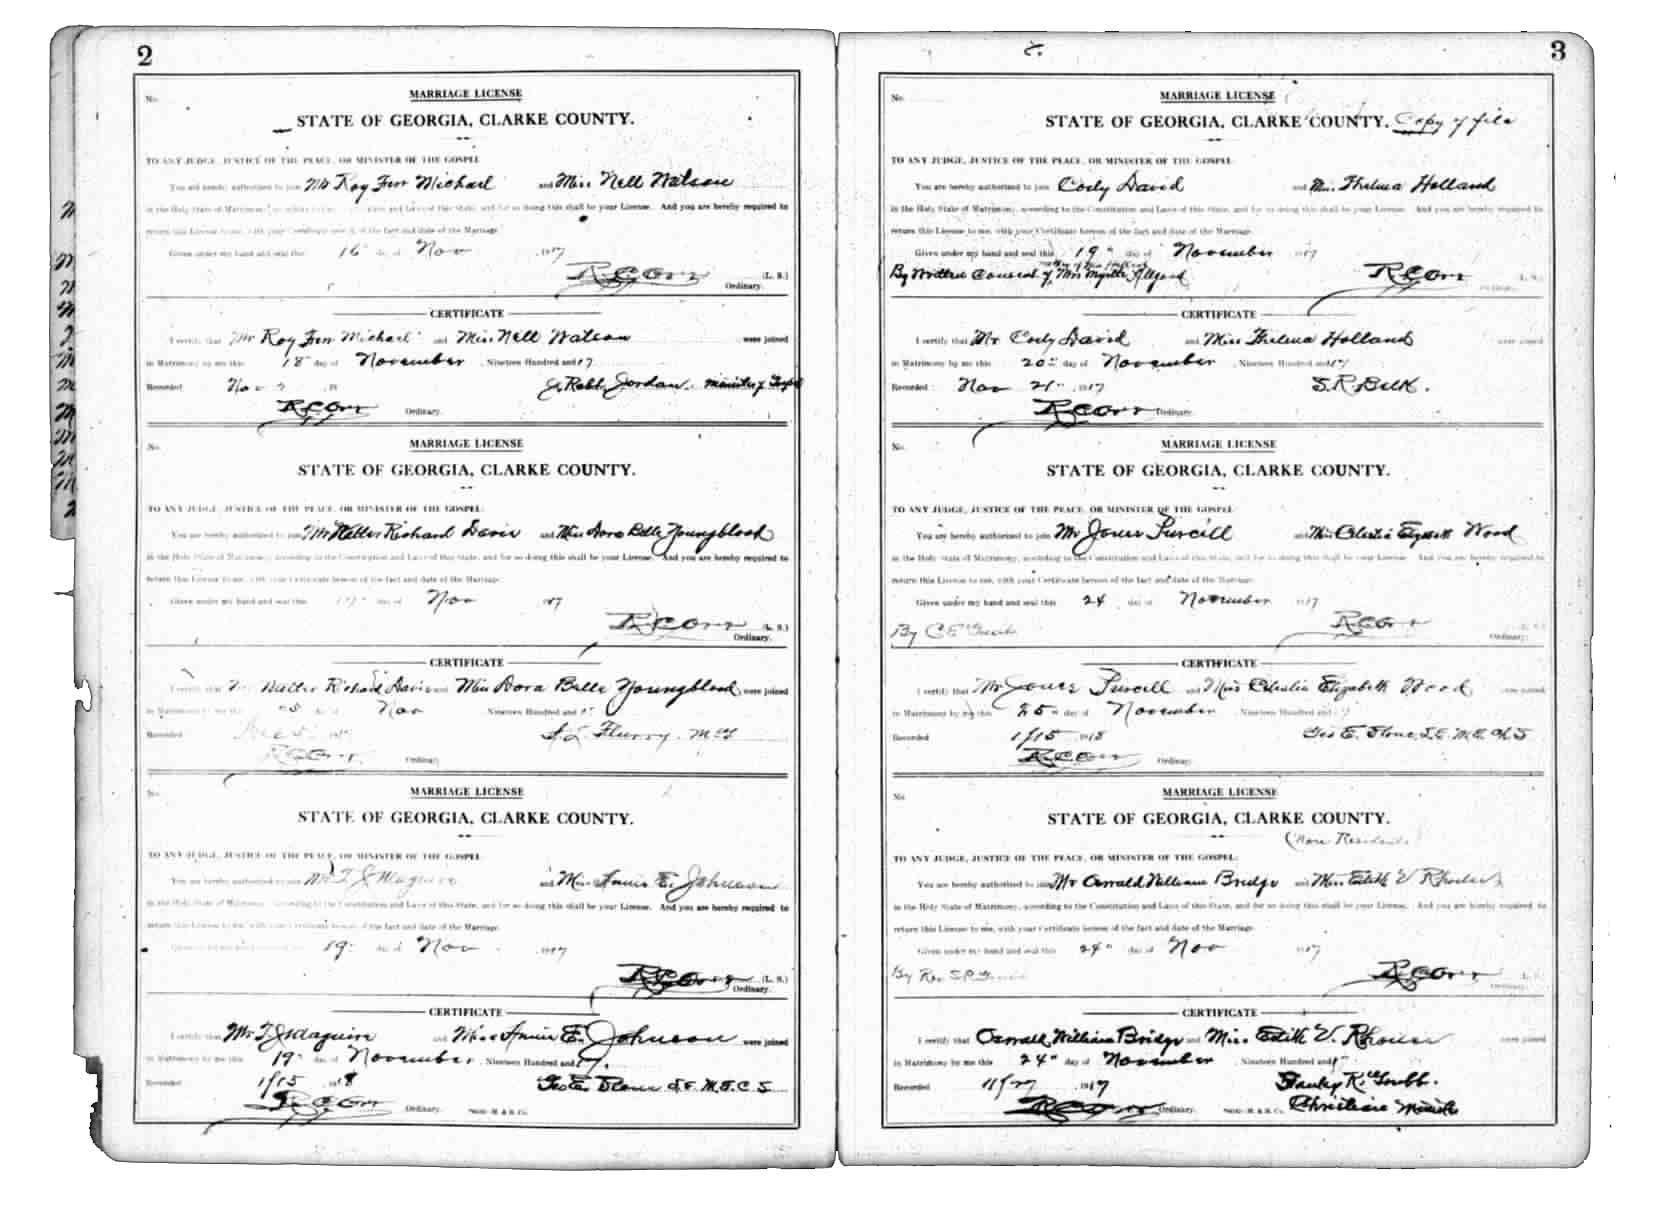 2
No.
MARRIAGE LICENSE
STATE OF GEORGIA, CLARKE COUNTY.
TO ANY JUDGE, JUSTICE OF THE PEACE, OR MINISTER OF THE GOSPEL
You are hereby authorized to join Mr Roy Michael and Miss Nell Watson
in the Holy State of Matrimony, of this State, and for so doing this shall be your License. And you are hereby required to
return this License to me, with your Certificate hereon of the fact and date of the Marriage.
Given under my hand and seal this 16" day of Nov 1917
R C Orr (L. S.)
Ordinary.
CERTIFICATE
I certify that Mr Roy Michael and Miss Nell Watson were joined
in Matrimony by me this 18" day of November, Nineteen Hundred and 17.
Recorded Nov 19 J. Robt. Jordan. Minister of Gospel
R C Orr Ordinary.
No.
MARRIAGE LICENSE
STATE OF GEORGIA, CLARKE COUNTY.
TO ANY JUDGE, JUSTICE OF THE PEACE, OR MINISTER OF THE GOSPEL:
You are hereby authorized to join Mr Walter Richard Davis and Miss Dora Belle Youngblood
in the Holy State of Matrimony, according to the Constitution and Laws of this State, and for so doing this shall be your License. And you are hereby required to
return this License to me, with your Certificate hereon of the fact and date of the Marriage.
Given under my hand and seal this day of Nov 1917
R C Orr (L. S.)
Ordinary.
CERTIFICATE
I certify that Walter Richard Davis and Miss Dora Belle Youngblood were joined
in Matrimony by me this day of Nov Nineteen Hundred and
Recorded Flurry. M G
R C Orr Ordinary
No.
MARRIAGE LICENSE
STATE OF GEORGIA, CLARKE COUNTY.
TO ANY JUDGE, JUSTICE OF THE PEACE, OR MINISTER OF THE GOSPEL
You are hereby authorized to join Mr T J Maguire and Miss Annie E. Johnson
in the Holy State of Matrimony, according to the Constitution and Laws of this State, and for so doing this shall be your License. And you are hereby required to
return this License to me, with your Certificate hereon of the fact and date of the Marriage.
Given under my hand and seal this 19" day of Nov 1917
R C Orr (L. S.)
Ordinary.
CERTIFICATE
I certify that Mr T J Maguire and Miss Annie E. Johnson were joined
in Matrimony by me this 19" day of November, Nineteen Hundred and 17.
Recorded 1/15 1918 Geo E. Stone J. E. M. E. C. S
R C Orr Ordinary.
3
No.
MARRIAGE LICENSE
STATE OF GEORGIA, CLARKE COUNTY. Copy of file
TO ANY JUDGE, JUSTICE OF THE PEACE, OR MINISTER OF THE GOSPEL:
You are hereby authorized to join Cody David and Miss Thelma Holland
in the Holy State of Matrimony, according to the Constitution and Laws of this State, and for so doing this shall be your License. And you are hereby required to
return this License to me, with your Certificate hereon of the fact and date of the Marriage.
Given under my hand and seal this 19" day of November 1917
By Written Consent of Mrs Myrtle Allgood R C Orr (L. S.)
Ordinary.
CERTIFICATE
I certify that Mr Cody David and Miss Thelma Holland were joined
in Matrimony by me this 20" day of November, Nineteen Hundred and 17
Recorded Nov 21" 1917 S. R. Belk.
R C Orr Ordinary.
No.
MARRIAGE LICENSE
STATE OF GEORGIA, CLARKE COUNTY.
TO ANY JUDGE, JUSTICE OF THE PEACE, OR MINISTER OF THE GOSPEL:
You are hereby authorized to join Mr Jones Purcell and Miss Celestia Elizabeth Wood
in the Holy State of Matrimony, according to the Constitution and Laws of this State, and for so doing this shall be your License. And you are hereby required to
return this License to me, with your Certificate hereon of the fact and date of the Marriage.
Given under my hand and seal this 24 day of November 1917
By C E R C Orr (L. S.)
Ordinary.
CERTIFICATE
I certify that Mr Jones Purcell and Miss Celestia Elizabeth Wood were joined
in Matrimony by me this 25" day of November, Nineteen Hundred and
Recorded 1/15 1918 Geo E. Stone, J. E. M. E. C. S
R C Orr Ordinary.
No.
MARRIAGE LICENSE
STATE OF GEORGIA, CLARKE COUNTY.
(None Residents)
TO ANY JUDGE, JUSTICE OF THE PEACE, OR MINISTER OF THE GOSPEL:
You are hereby authorized to join Mr Orrald William Bridge and Miss Edith V Rhodes
in the Holy State of Matrimony, according to the Constitution and Laws of this State, and for so doing this shall be your License. And you are hereby required to
return this License to me, with your Certificate hereon of the fact and date of the Marriage.
Given under my hand and seal this 24" day of Nov 1917
By Rev. S R R C Orr (L. S.)
Ordinary.
CERTIFICATE
I certify that Orrald William Bridge and Miss Edith V. Rhodes were joined
in Matrimony by me this 24" day of November, Nineteen Hundred and
Recorded 11/27 1917 Stanley R. Grubb.
R C Orr Ordinary. Christian Minister